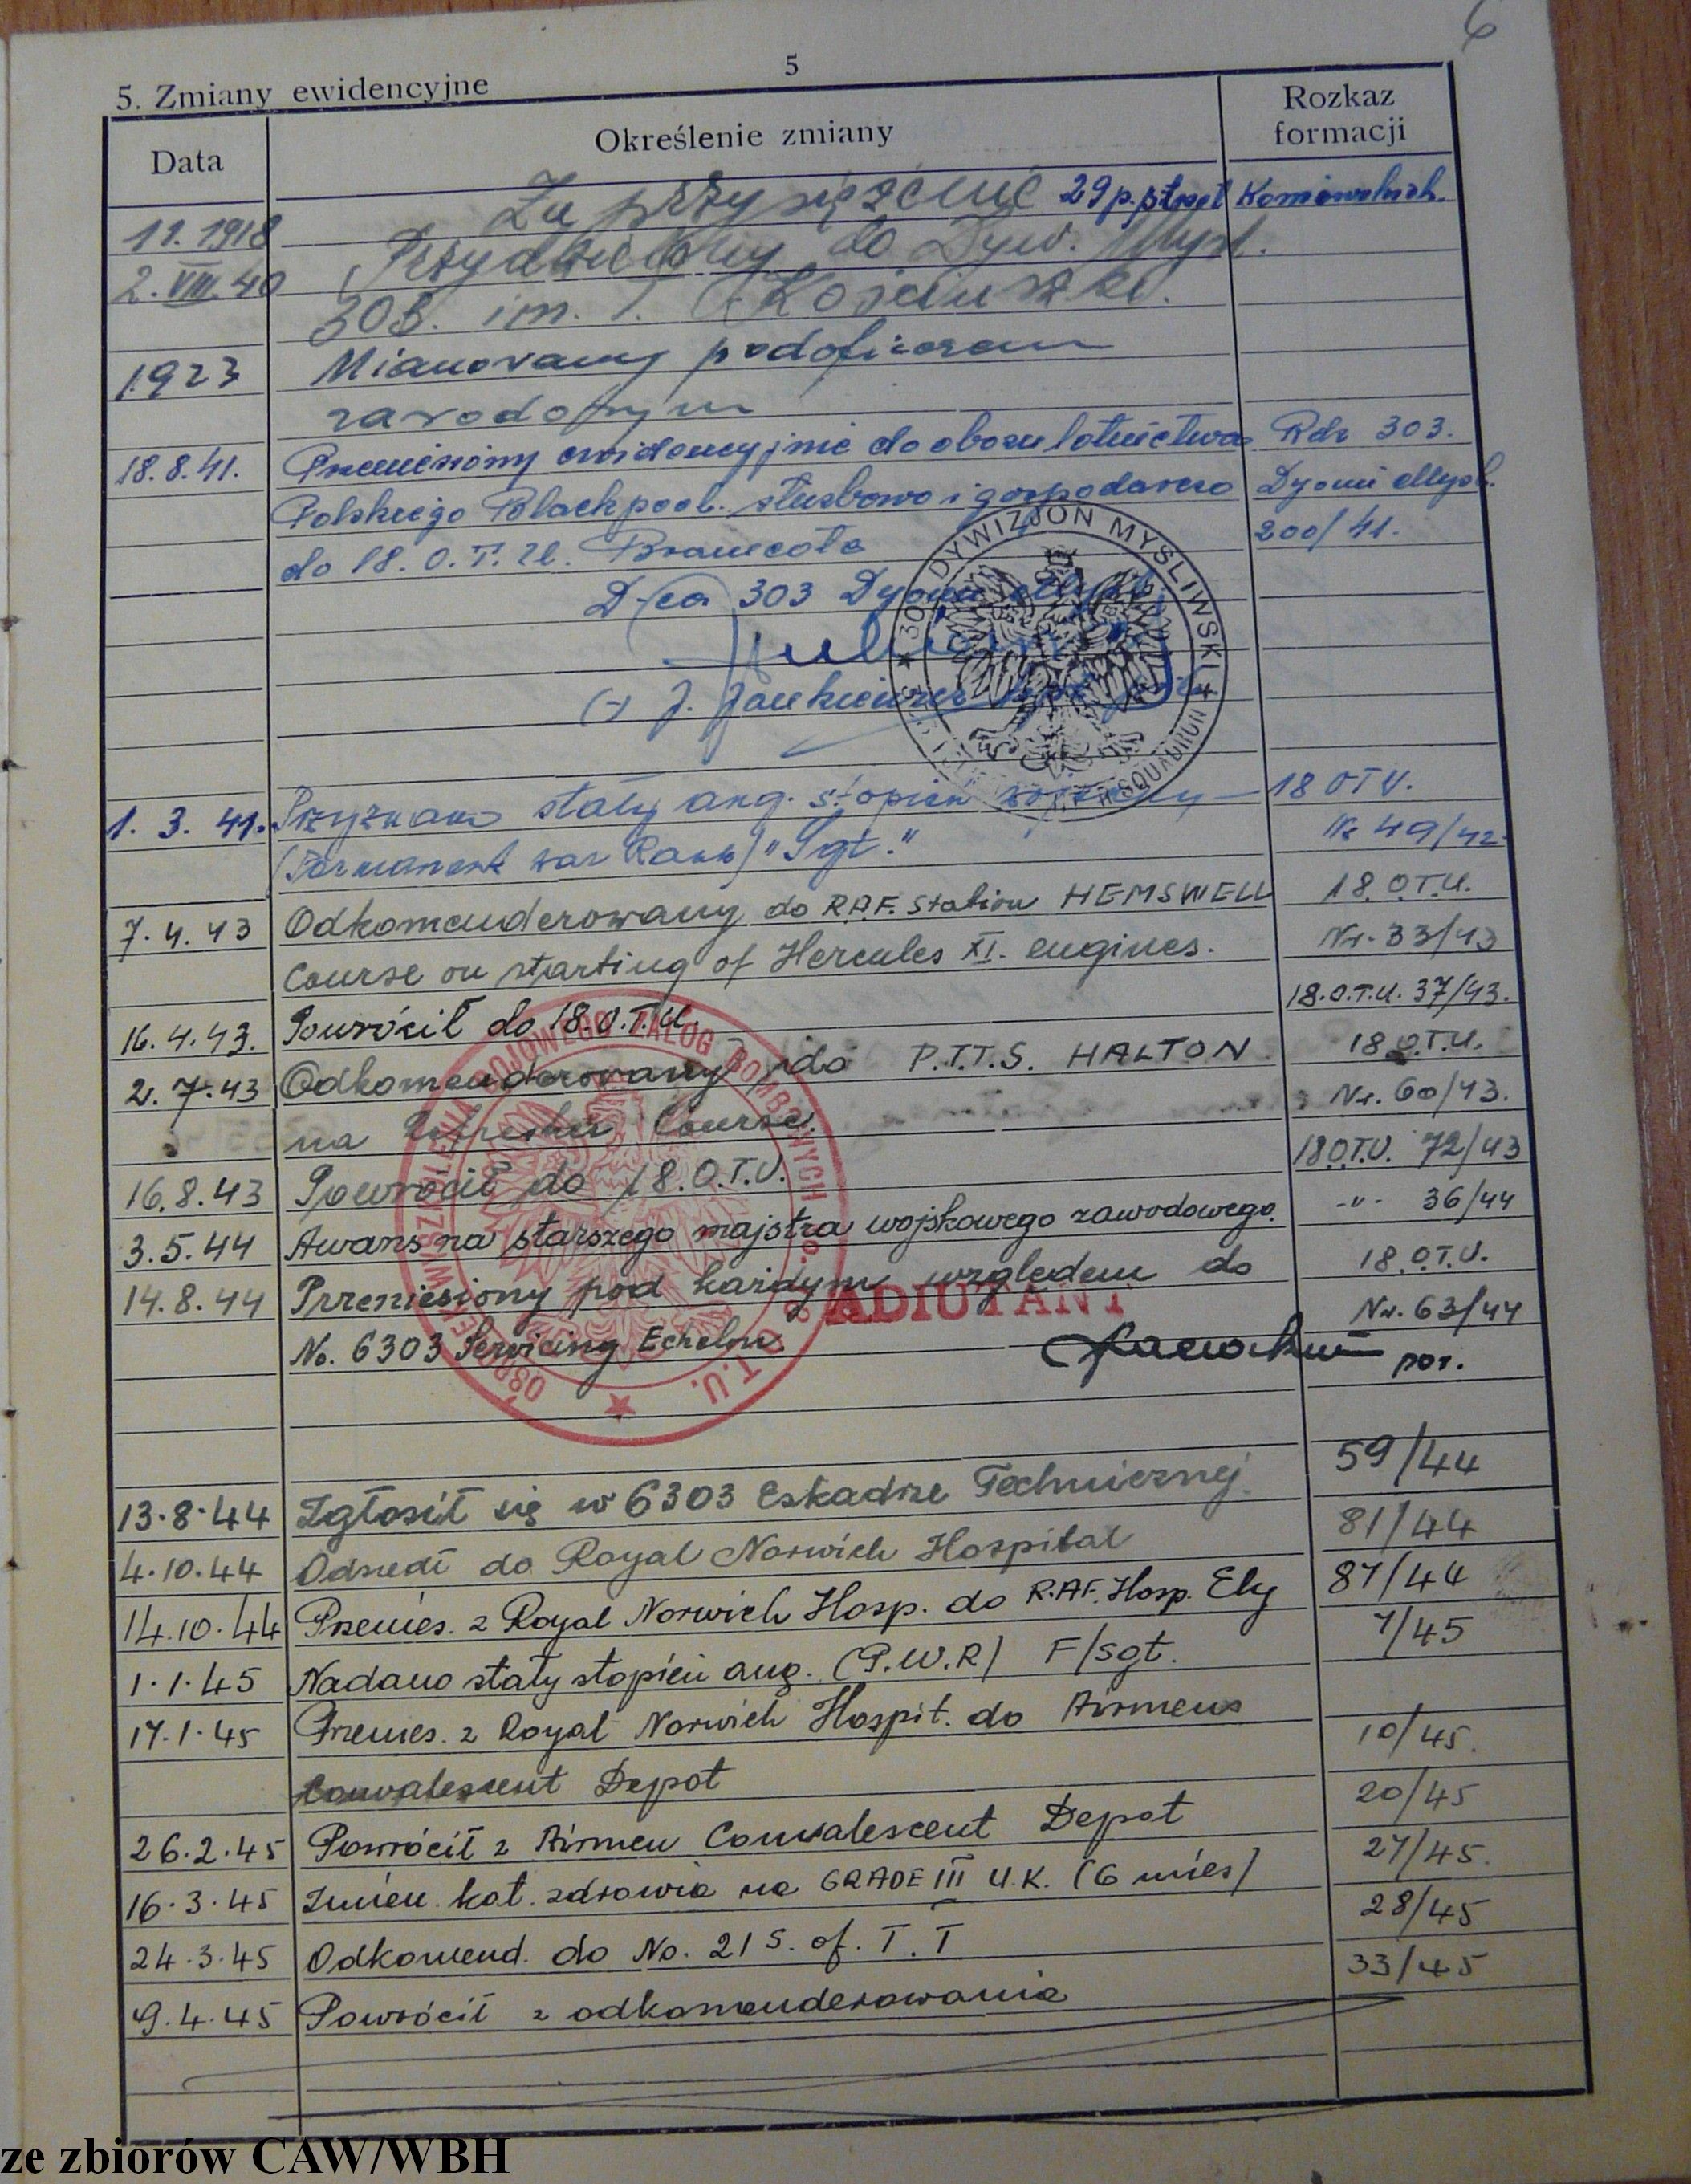 6
5
5. Zmiany ewidencyjne
Data Określenie zmiany Rozkaz formacji
11.1918 Za przysiężenie 29 p. strzel Kaniowskich.
2.VIII.40 Przydzielony do Dyw. Myśl.
303. im. T. Kościuszki.
1923 Mianowany podoficerem
zawodowym
18.8.41. Przeniesiony ewidencyjnie do obozu lotnictwa Rdz 303.
Polskiego Blackpool. służbowo i gospodarczo Dyonu Myśl.
do 18. O.T.U. Bramcote 200/41.
D-ca 303 Dyonu Myśl.
(-) J. Jankiewicz
DYWIZJON MYŚLIWSKI
SQUADRON
1.3.41. Przyznano stały ang. stopień wojenny 18 OTU.
(Permanent war Rank) "Sgt." Nr 49/42
7.4.43 Odkomenderowany do R.A.F. Station HEMSWELL 18.O.T.U.
Course on starting of Hercules XI. engines. Nr. 33/43
16.4.43. Powrócił do 18.O.T.U. 18.O.T.U. 37/43.
2.7.43 Odkomenderowany do P.T.T.S. HALTON 18.O.T.U.
na Refresher Course. Nr. 60/43.
16.8.43 Powrócił do 18.O.T.U. 18O.T.U. 72/43
3.5.44 Awans na starszego majstra wojskowego zawodowego. -"- 36/44
14.8.44 Przeniesiony pod każdym względem do 18.O.T.U.
No. 6303 Servicing Echelon. Nr. 63/44
ADIUTANT
por.
BOJOWEGO ZAŁÓG BOMBOWYCH
T.U.
59/44
13.8.44 Zgłosił się w 6303 Eskadrze Technicznej.
4.10.44 Odszedł do Royal Norwich Hospital 81/44
14.10.44 Przenies. z Royal Norwich Hosp. do R.A.F. Hosp. Ely 87/44
1.1.45 Nadano stały stopień ang. (P.W.R) F/Sgt. 7/45
17.1.45 Przenies. z Royal Norwich Hospit. do Airmens
Convalescent Depot 10/45.
26.2.45 Powrócił z Airmen Convalescent Depot 20/45
16.3.45 Zmien. kat. zdrowia na GRADE III U.K. (6 mies) 27/45.
24.3.45 Odkomend. do No. 21 S. of. T.T 28/45
9.4.45 Powrócił z odkomenderowania 33/45
ze zbiorów CAW/WBH